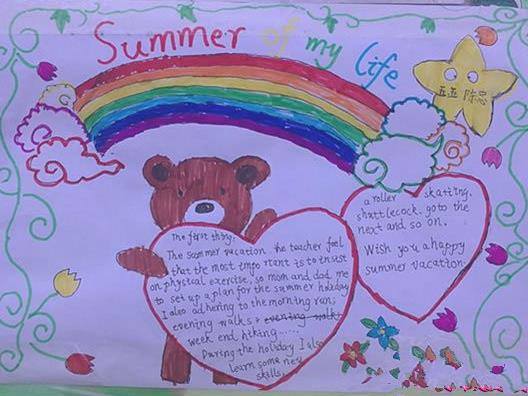 Summer of my life
五五 陈忠
The first thing:
The summer vacation the teacher feel
that the most impo rtant is to insist
on physical exercise, so mom and dad me
to set up a plan for the summer holiday
I also adhering to the morning run;
evening walks; evening walks
week end hiking......
During the holiday I also
learn some new
skills,
a roller skating.
shattlecock. goto the
next and so on.
Wish you a happy
summer vacation.